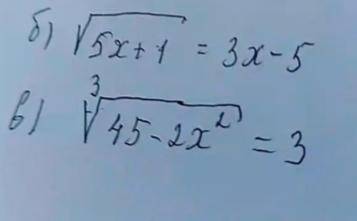 б) √5x+1 = 3x-5
в) ∛45-2x² = 3